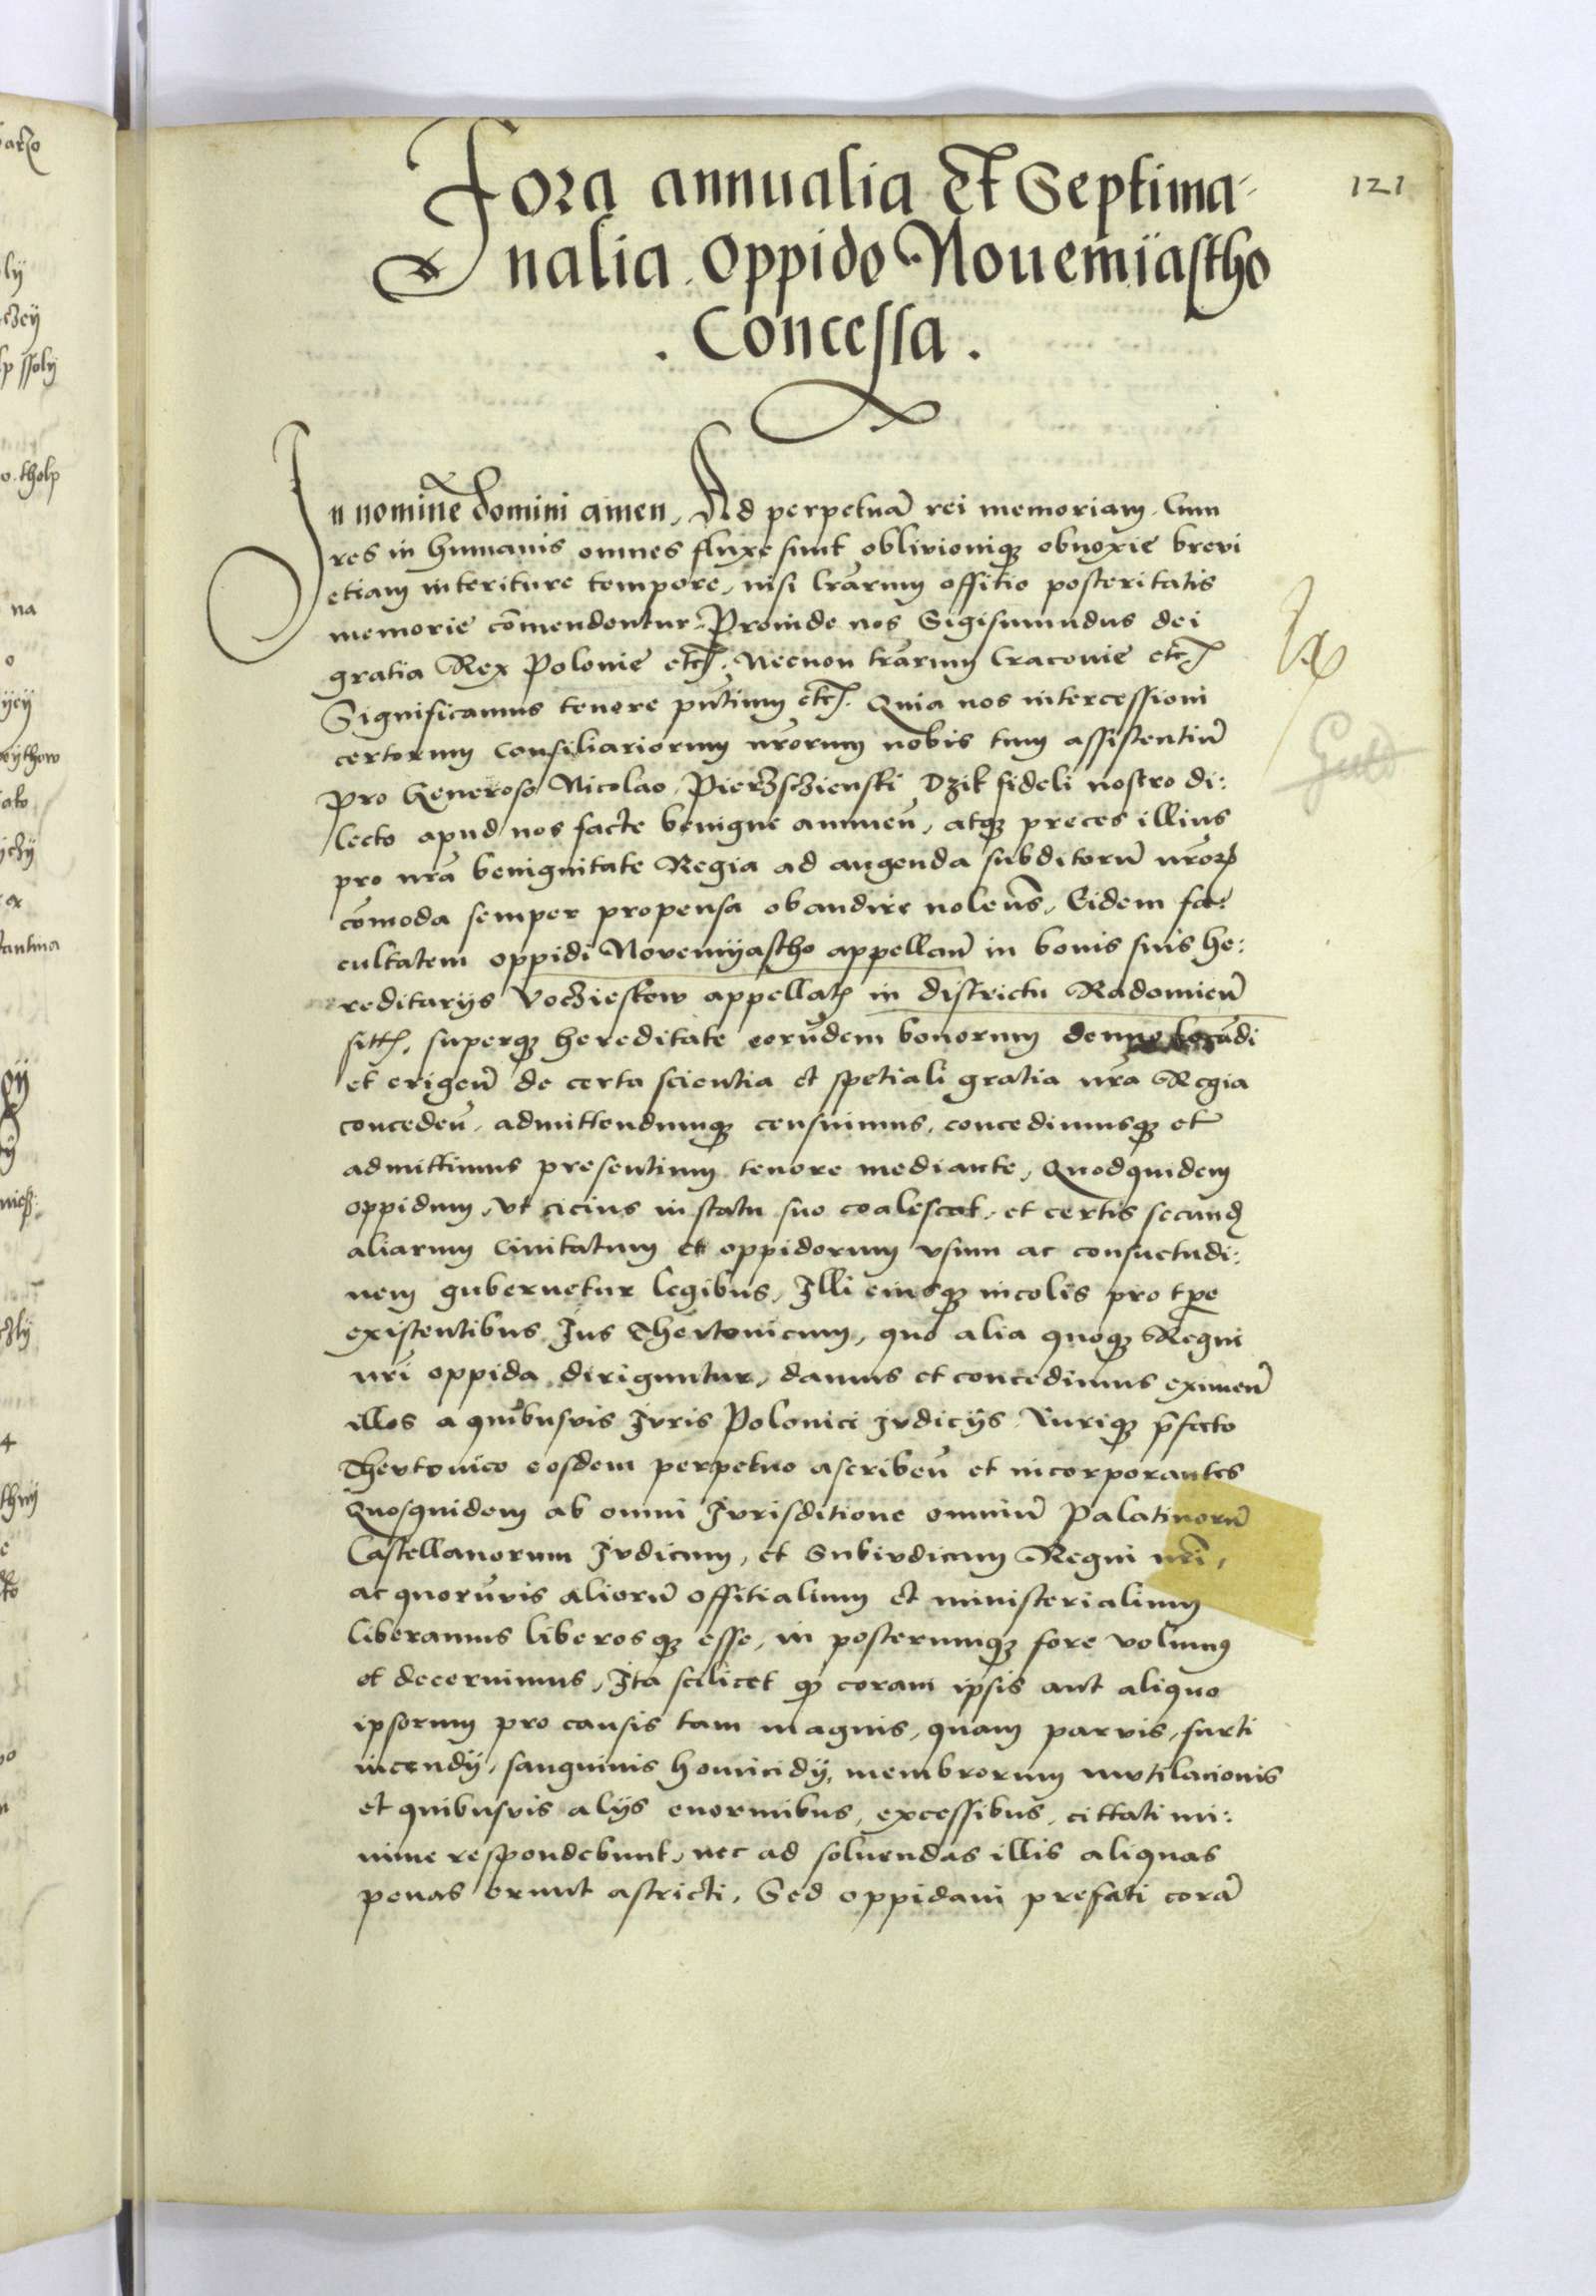 121
Fora annualia Et Septima-
nalia oppido Nouemiastho
. Concessa .
In nomine domini amen, Ad perpetuā rei memoriam. Cum
res in humanis omnes fluxe sint oblivioniqȝ obnoxie brevi
etiam interiture tempore, nisi lrārum offitio posteritatis
memorie cōmendentur. Proinde nos Sigismundus dei
gratia Rex Polonie etc. Necnon trārum Cracovie etc.
Significamus tenore pñtium etc. Quia nos intercessioni
certorum consiliariorum nr̄orum nobis tum assistentiū
pro Generoso Nicolao Pierzschienski Dzik fideli nostro di:
lecto apud nos facte benigne annuen̄, atqȝ preces illius
pro nrā benignitate Regia ad augenda subditorū nr̄oꝝ
cōmoda semper propensa obaudire nolen̄s, Eidem fa:
cultatem oppidi Novemyastho appellan̄ in bonis suis he:
reditarijs Voczieskow appellat in districtu Radomien̄
sitt, superqȝ hereditate eorūdem bonorum denuo locādi
et erigen̄ de certa scientia et spetiali gratia nrā Regia
conceden̄, admittendumqȝ censuimus, concedimusqȝ et
admittimus presentium tenore mediante, Quodquidem
oppidum, vt cicius in statu suo coalescat, et certis secund
aliarum Civitatum et oppidorum vsum ac consuetudi:
nem gubernetur legibus, Illi eiusqȝ incolis pro tꝑe
existentibus Jus Thevtonicum, quo alia quoqȝ Regni
nr̄i oppida diriguntur, damus et concedimus eximen̄
illos a quibusvis Jvris Polonici Jvdicijs Juriqȝ p̄fato
Thevtonico eosdem perpetuo ascriben̄ et incorporantes
Quosquidem ab omni Jvrisditione omniū Palatinorū
Castellanorum Jvdicum, et Subivdicum Regni nr̄i,
ac quorūvis aliorū offitialium et ministerialium
liberamus liberosqȝ esse, in posterumqȝ fore volumꝰ
et decernimus, Ita scilicet qȝ coram ipsis aut aliquo
ipsorum pro causis tam magnis, quam parvis, furti
incendij, sanguinis homicidij, membrorum mvtilacionis
et quibusvis alijs enormibus, excessibus, cittati mi:
nime respondebunt, nec ad soluendas illis aliquas
penas erunt astricti, Sed oppidani prefati corā